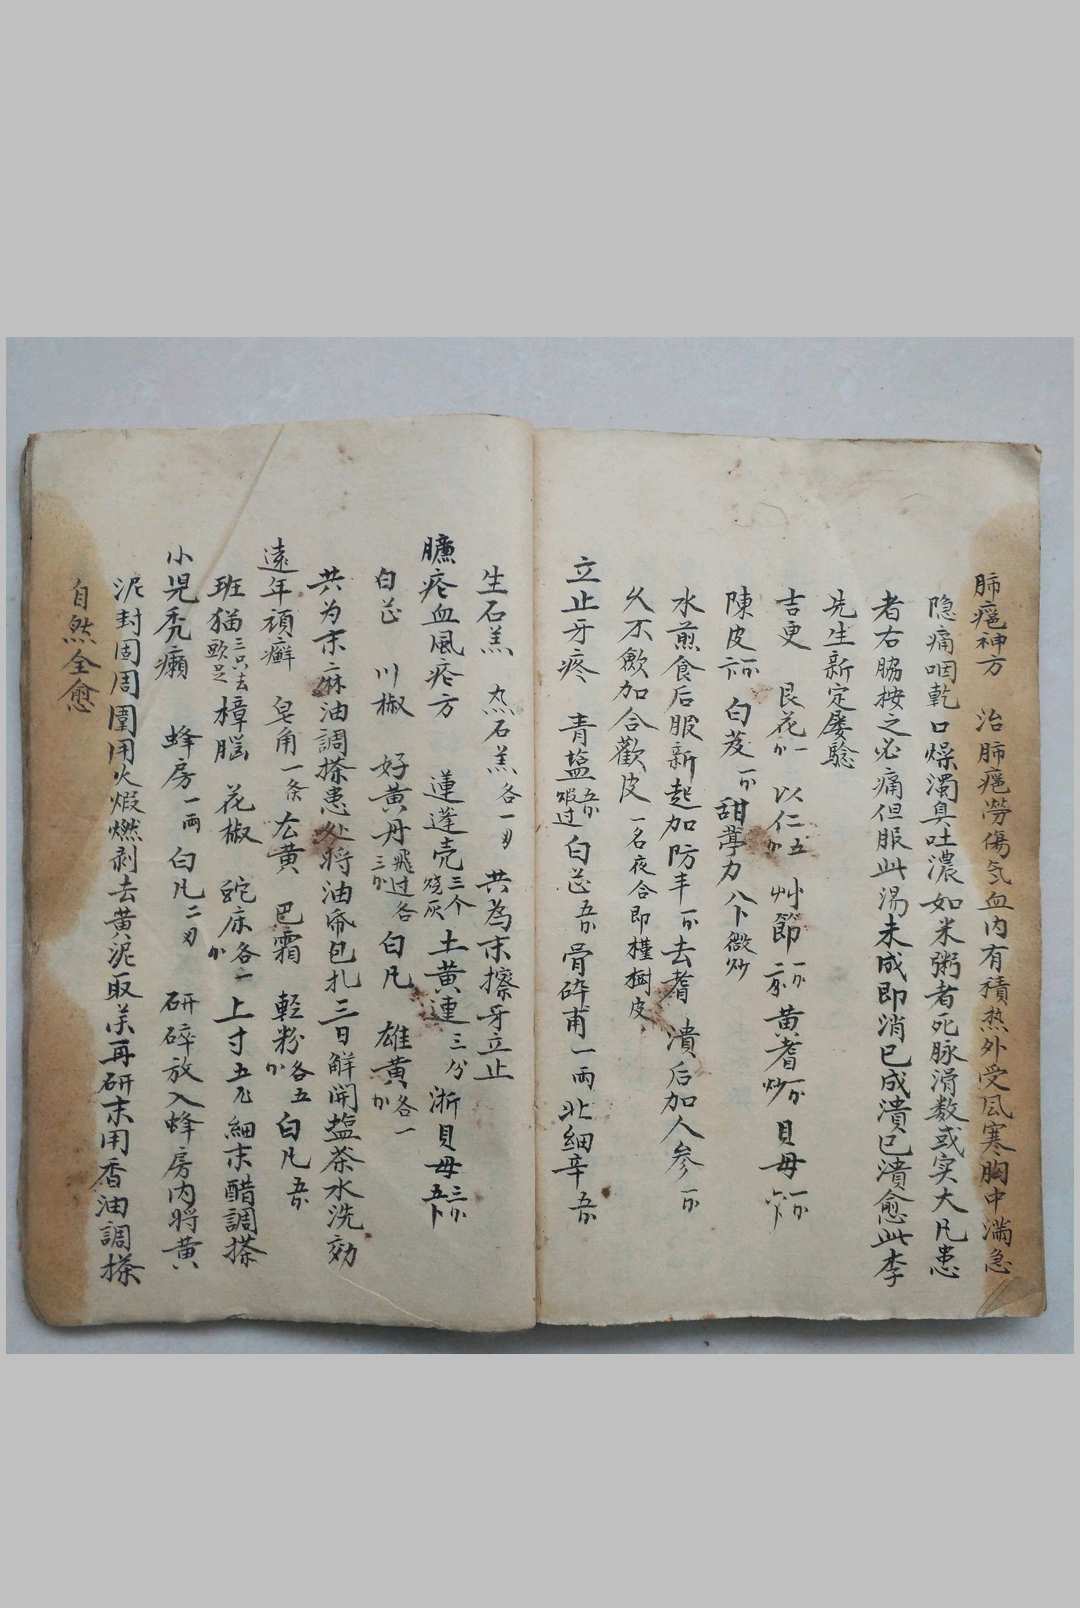 肺癰神方 治肺癰勞傷気血内有積热外受風寒胸中滿急
隐痛咽乾口燥濁臭吐濃如米粥者死脉滑数或实大凡患
者右脇按之必痛但服此湯未成即消已成潰已潰愈此李
先生新定屡驗
吉更 艮花一 以仁五 艸節 黄耆炒 貝母
陳皮 白芨 甜葶力 八卜微炒
水煎食后服新起加防丰 去耆 潰后加人参
久不歛加合歡皮 一名夜合即槿樹皮
立止牙疼 青盐煅过 白芷 骨碎甫一両 北細辛
生石羔 热石羔各一刄 共為末擦牙立止
臁疮血風疮方 蓮蓬壳三个烧灰 土黄連三分 浙貝母
白芷 川椒 好黄丹飛过 各三 白凡 雄黄各一
共为末麻油調搽患处将油帋包扎三日解開盐茶水洗効
遠年頑癬 皂角一条 広黄 巴霜 軽粉各五 白凡
班猫三只去頭足 樟脳 花椒 蛇床各一 上寸五 細末醋調搽
小児禿癩 蜂房一両 白凡二刄 研碎放入蜂房内将黄
泥封固周圍用火煅燃剥去黄泥取关再研末用香油調搽
自然全愈